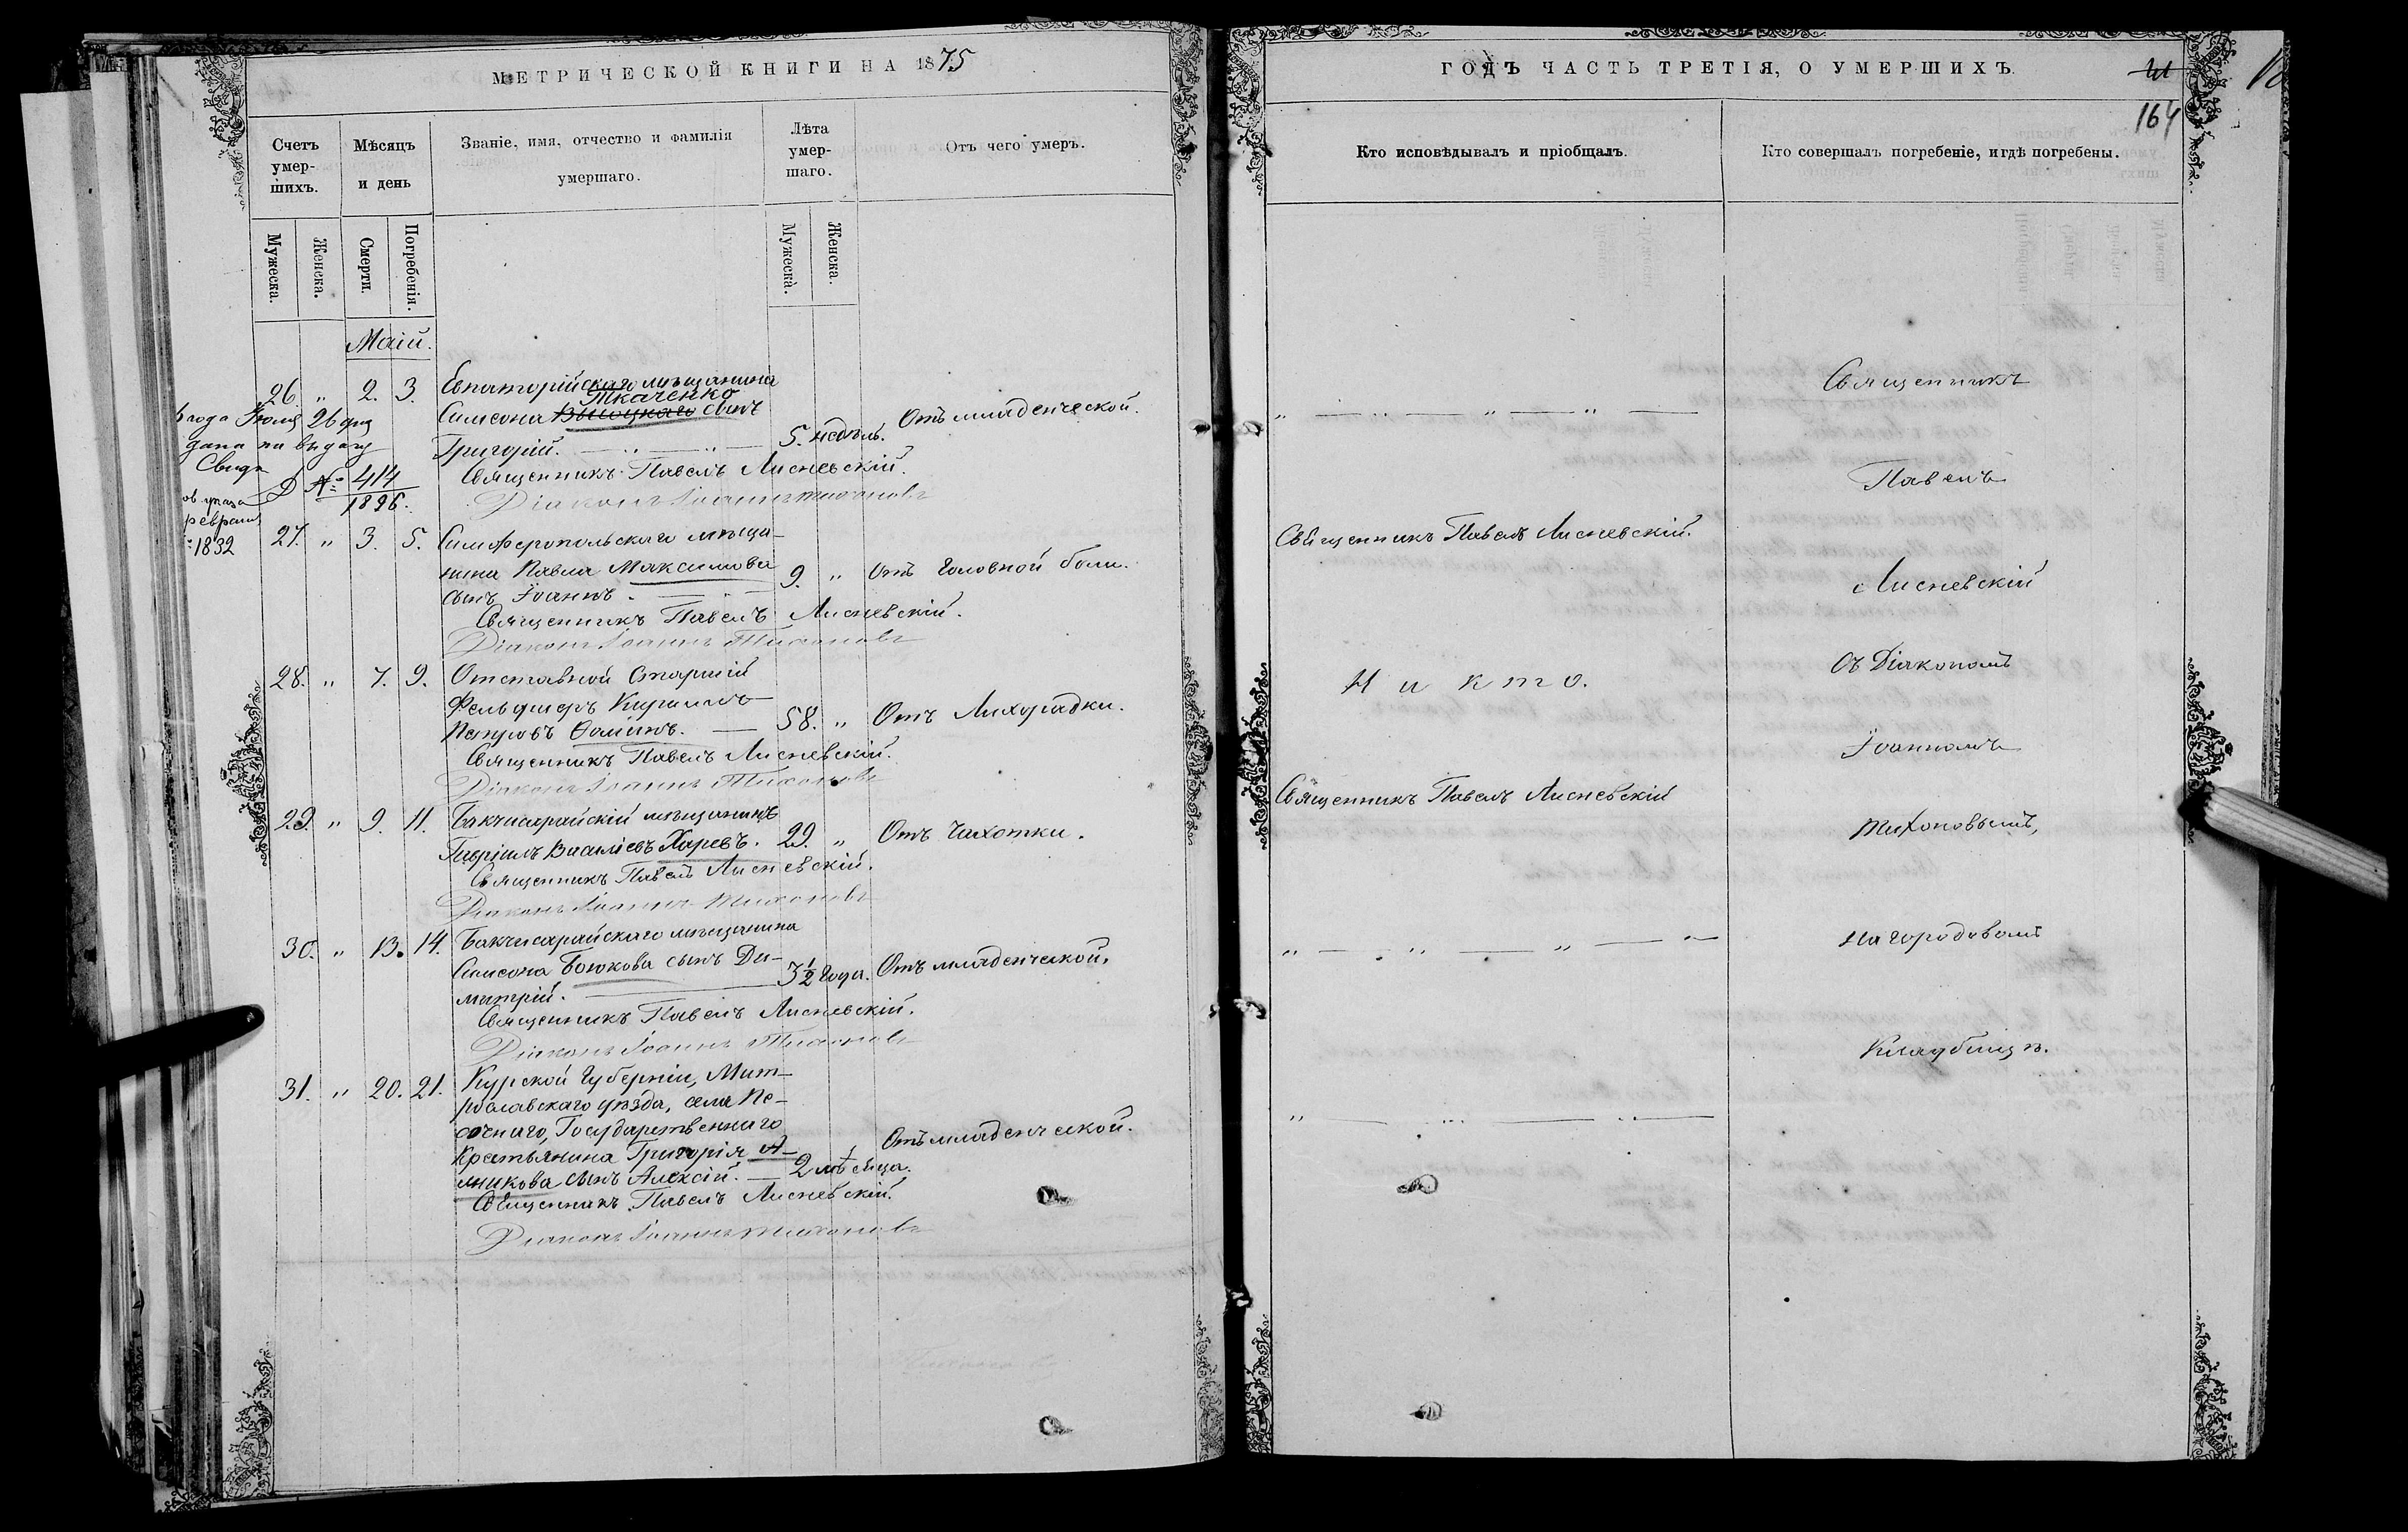 МЕТРИЧЕСКОЙ КНИГИ НА 1875
Счетъ умер-шихъ.
Мѣсяцъ и день
Званіе, имя, отчество и фамилія умершаго.
Лѣта умер-шаго.
Отъ чего умеръ.
Мужеска.
Женска.
Смерти.
Погребенія.
Мужеска.
Женска.
Маій.
26. " 2. 3. Евпаторійскаго мѣщанина
Ткаченко
Симеона Высоцкаго сынъ
Григорій. 5. недѣль. Отъ младенческой.
Священникъ Павелъ Лисневскій.
Діаконъ Іоаннъ Тихоновъ
года Іюля 26 дня
дана на выдачу
Свид
№ 414
1896.
указа
февраля
1832
27. " 3. 5. Симферопольскаго мѣща-
нина Павла Максимова
сынъ Іоаннъ. 9. " Отъ головной боли.
Священникъ Павелъ Лисневскій.
Діаконъ Іоаннъ Тихоновъ
28. " 7. 9. Отставной Старшій
Фельдшеръ Кириллъ
Петровъ Ѳоминъ. 58. " Отъ Лихорадки.
Священникъ Павелъ Лисневскій.
Діаконъ Іоаннъ Тихоновъ
29. " 9. 11. Бакчисарайскій мѣщанинъ
Гавріилъ Василіевъ Харевъ. 29. " Отъ Чахотки.
Священникъ Павелъ Лисневскій.
Діаконъ Іоаннъ Тихоновъ
30. " 13. 14. Бакчисарайскаго мѣщанина
Симеона Боюкова сынъ Ди-
митрій. 3 1/2 года. Отъ младенческой.
Священникъ Павелъ Лисневскій.
Діаконъ Іоаннъ Тихоновъ
31. " 20. 21. Курской Губерніи, Мит-
рославскаго уѣзда, села Пе-
сочнаго, Государственнаго
Крестьянина Григорія А-
лникова сынъ Алексій. 2 мѣсяца. Отъ младенческой.
Священникъ Павелъ Лисневскій.
Діаконъ Іоаннъ Тихоновъ
ГОДЪ ЧАСТЬ ТРЕТІЯ, О УМЕРШИХЪ.
164
Кто исповѣдывалъ и пріобщалъ.
Кто совершалъ погребеніе, и гдѣ погребены.
Священникъ Павелъ Лисневскій.
Никто.
Священникъ Павелъ Лисневскій
Священникъ
Павелъ
Лисневскій
съ Діакономъ
Іоанномъ
Тихоновымъ,
на городовомъ
Кладбищѣ.